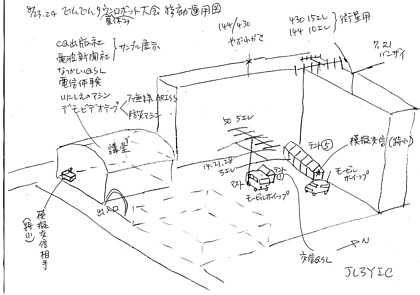 8/23.24 でんでんタウンロボット大会 移動運用図
CQ出版社
電波新聞社
なかいQSL
電信体験
いにしえのマシン
デモビデオテープ
サンプル展示
ARISS
144/430
430 15エレ
144 10エレ
衛星用
7.21
バンザイ
講堂
50 5エレ
14.21.28
3エレ
テント⑤
模擬交信(特小)
モービルホイップ
テント
モービルホイップ
出入口
模擬交信相手
(特小)
交信QSL
N
JL3YIC